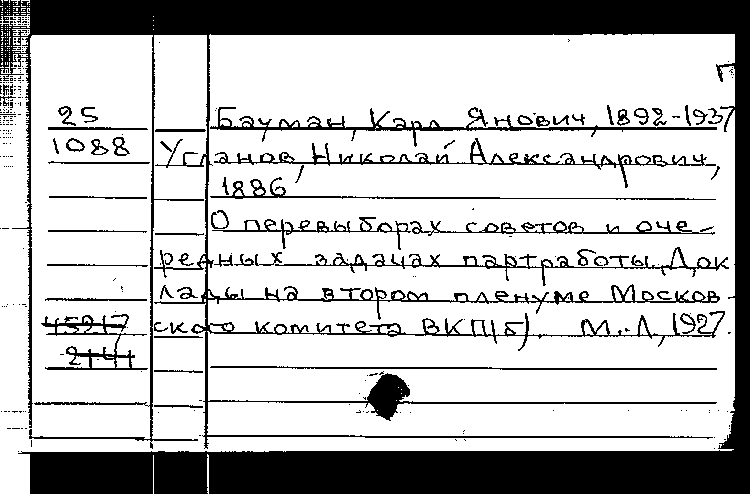 П
25 Бауман, Карл Янович, 1892-1937
1088 Угланов, Николай Александрович,
1886
О перевыборах советов и оче-
редных задачах партработы. Док
лады на втором пленуме Москов-
45217 ского комитета ВКП(б). М.-Л, 1927.
2141